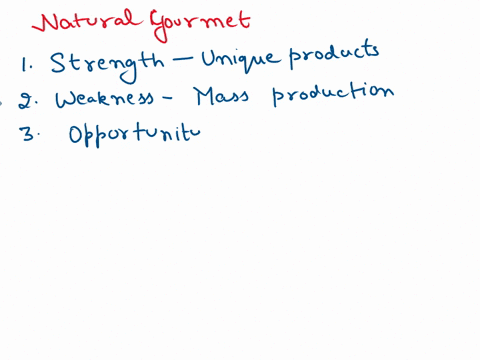 Natural Gourmet
1. Strength — Unique products
2. Weakness - Mass production
3. Opportunity